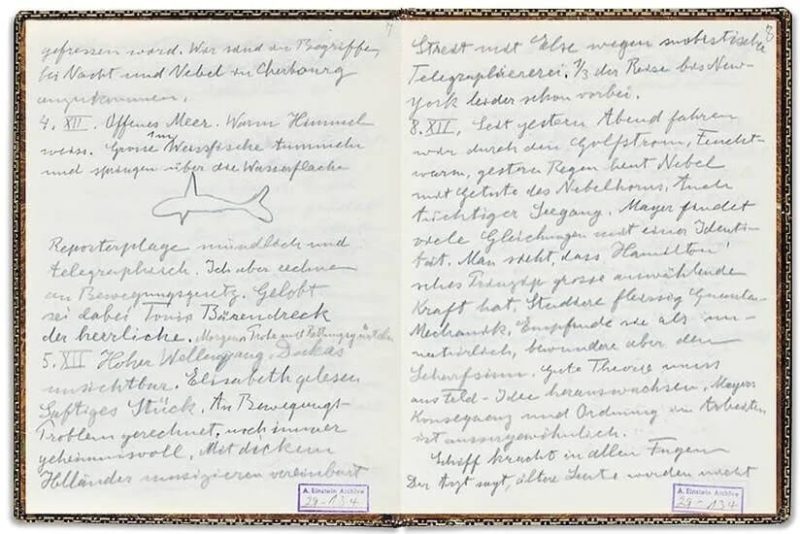 7
gefressen ward. War sind im Begriffe,
bei Nacht und Nebel in Cherbourg
anzukommen.
4. XII. Offenes Meer. Warm Himmel
weiss. Grosse Weissfische tummeln
und springen über die Wasserfläche
Reporterplage mündlich und
telegraphisch. Ich aber rechnen
an Bewegungsgesetz. Gelobt
sei dabei Tonis Bärendreck
der herrliche. Morgens Probe mit Rettungsgürtchen
5. XII Hoher Wellengang. Dukas
unsichtbar. Elisabeth gelesen
Saftiges Stück. An Bewegungs-
Problem gerechnet, noch immer
geheimnisvoll. Mit dickem
Holländer musizieren vereinbart
A. Einstein Archive
29-134
8
Streit mit Else wegen
Telegraphiererei. 1/3 der Reise bis New-
York leider schon vorbei.
8. XII. Seit gestern Abend fahren
wir durch den Golfstrom, Feucht-
warm, gestern Regen heut Nebel
mit Getute des Nebelhorns. Auch
tüchtiger Seegang. Mayer findet
viele Gleichungen mit einer Identi-
tät. Man sieht, dass Hamilton'
sches Prinzip grosse auswählende
Kraft hat. Studiere fleissig Quanten-
Mechanik. Empfinde sie als un-
natürlich, bewundere aber den
Scharfsinn. Gute Theorie muss
aus Feld-Idee herauswachsen. Mayers
Konsequenz und Ordnung im Arbeiten
ist aussergewöhnlich.
Schiff kracht in allen Fugen
Der Arzt sagt, ältere Leute werden nicht
A. Einstein Archive
29-134